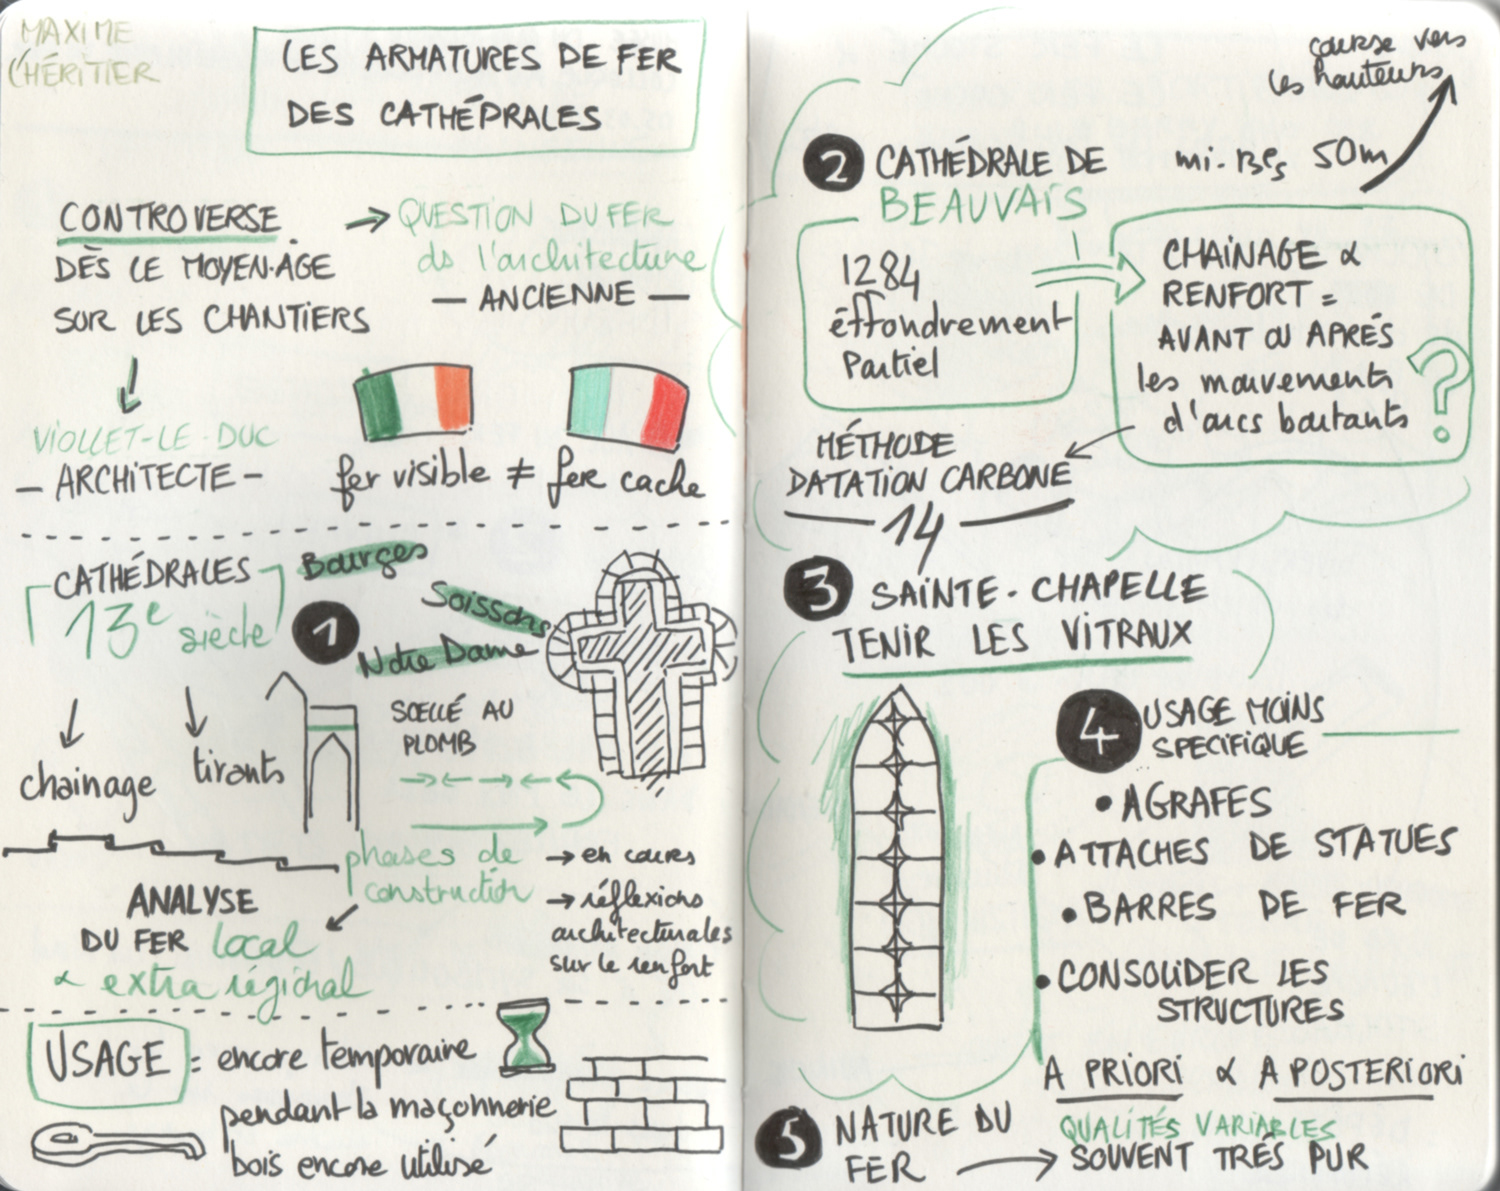 MAXIME
L'HÉRITIER
LES ARMATURES DE FER
DES CATHÉDRALES
CONTROVERSE
DÈS LE MOYEN-ÂGE
SUR LES CHANTIERS
QUESTION DU FER
ds l'architecture
— ANCIENNE —
VIOLLET-LE-DUC
— ARCHITECTE —
fer visible ≠ fer cache
CATHÉDRALES
13e siècle
1
Bourges
Soissons
Notre Dame
chainage
tirants
SCELLÉ AU
PLOMB
phases de
construction
→ en cours
→ réflexions
architecturales
sur le renfort
ANALYSE
DU FER local
& extra régional
USAGE = encore temporaire
pendant la maçonnerie
bois encore utilisé
course vers
les hauteurs
2 CATHÉDRALE DE
BEAUVAIS
50m
1284
éffondrement
Partiel
CHAINAGE &
RENFORT =
AVANT OU APRÉS
les mouvements
d'arcs boutants
?
MÉTHODE
DATATION CARBONE
14
3 SAINTE-CHAPELLE
TENIR LES VITRAUX
4 USAGE MOINS
SPECIFIQUE
• AGRAFES
• ATTACHES DE STATUES
• BARRES DE FER
• CONSOLIDER LES
STRUCTURES
A PRIORI & A POSTERIORI
5 NATURE DU
FER →
QUALITÉS VARIABLES
SOUVENT TRÉS PUR